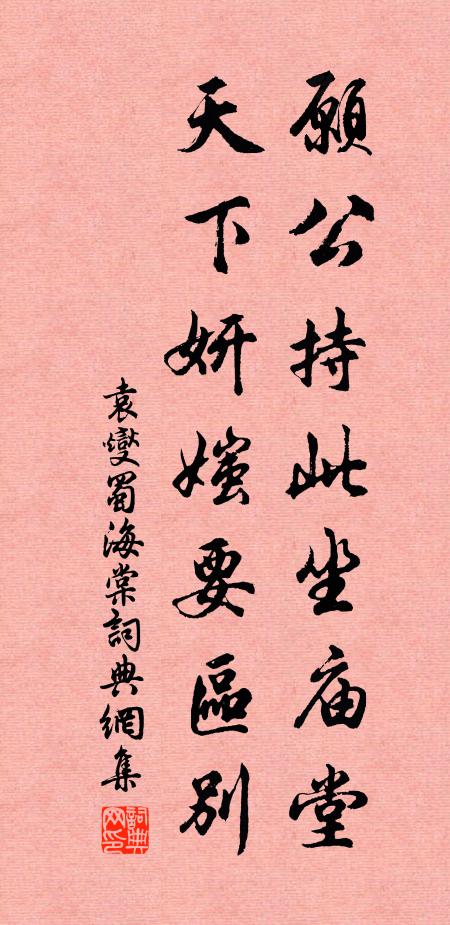 願公持此坐庙堂
天下妍媸要區别
袁燮蜀海棠詞典網集
詞典网印